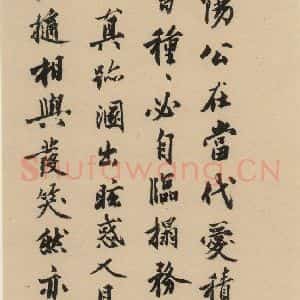 陽公在當代愛積
百種〻必自臨搨務
真跡溷出眩惑人
擿相與發笑然亦
Shufawang.CN